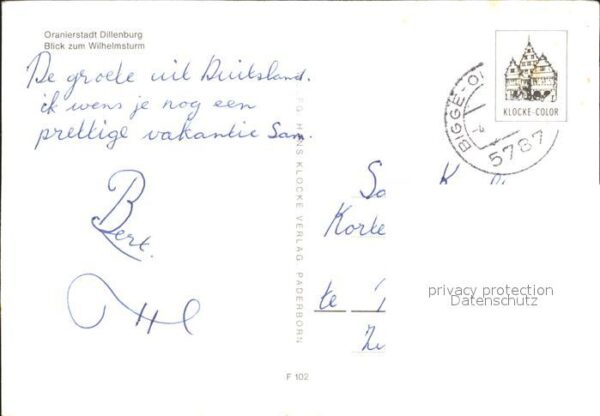 Oranierstadt Dillenburg
Blick zum Wilhelmsturm
De groete uit Duitsland.
ik wens je nog een
prettige vakantie Sam.
Bert.
KLOCKE-COLOR
BIGGE-O
5787
HANS KLOCKE VERLAG PADERBORN
Sa K
Korte
te
privacy protection
Datenschutz
F 102